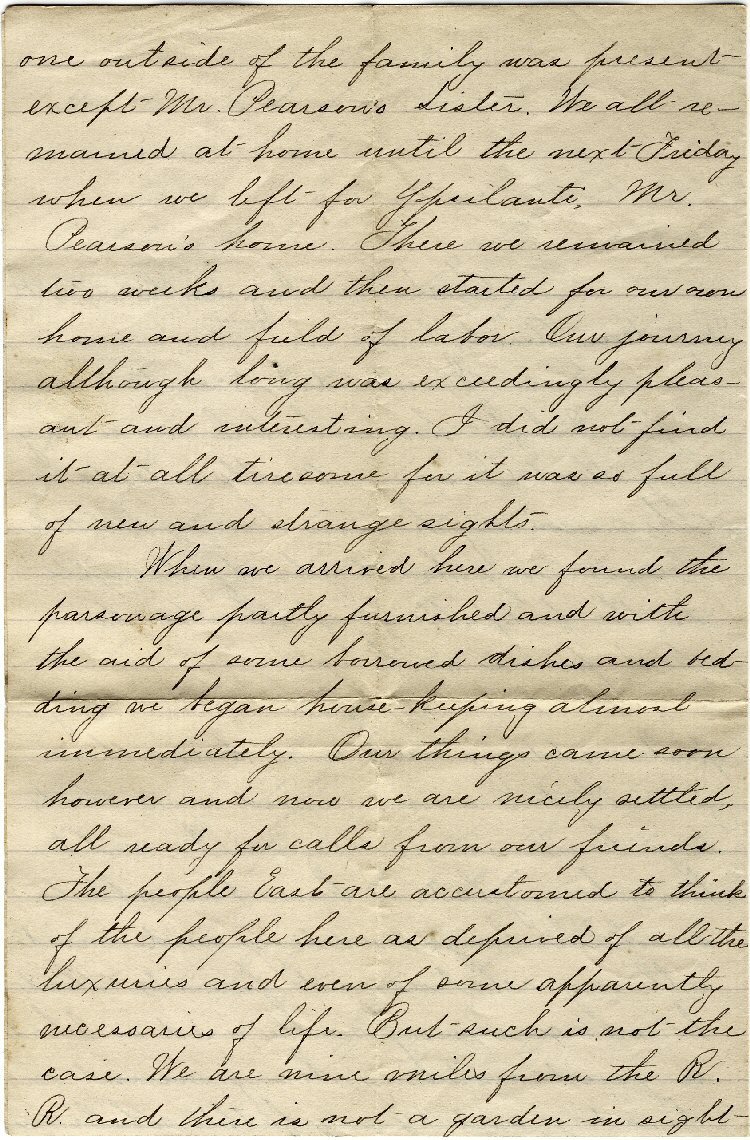 one outside of the family was present
except Mr. Pearson's sister. We all re-
mained at home until the next Friday
when we left for Ypsilanti, Mr.
Pearson's home. There we remained
two weeks and then started for our own
home and field of labor. Our journey
although long was exceedingly pleas-
ant and interesting. I did not find
it at all tiresome for it was so full
of new and strange sights.
When we arrived here we found the
parsonage partly furnished and with
the aid of some borrowed dishes and bed-
ding we began house-keeping almost
immediately. Our things came soon
however and now we are nicely settled,
all ready for calls from our friends.
The people East are accustomed to think
of the people here as deprived of all the
luxuries and even of some apparently
necessaries of life. But such is not the
case. We are nine miles from the R.
R. and there is not a garden in sight